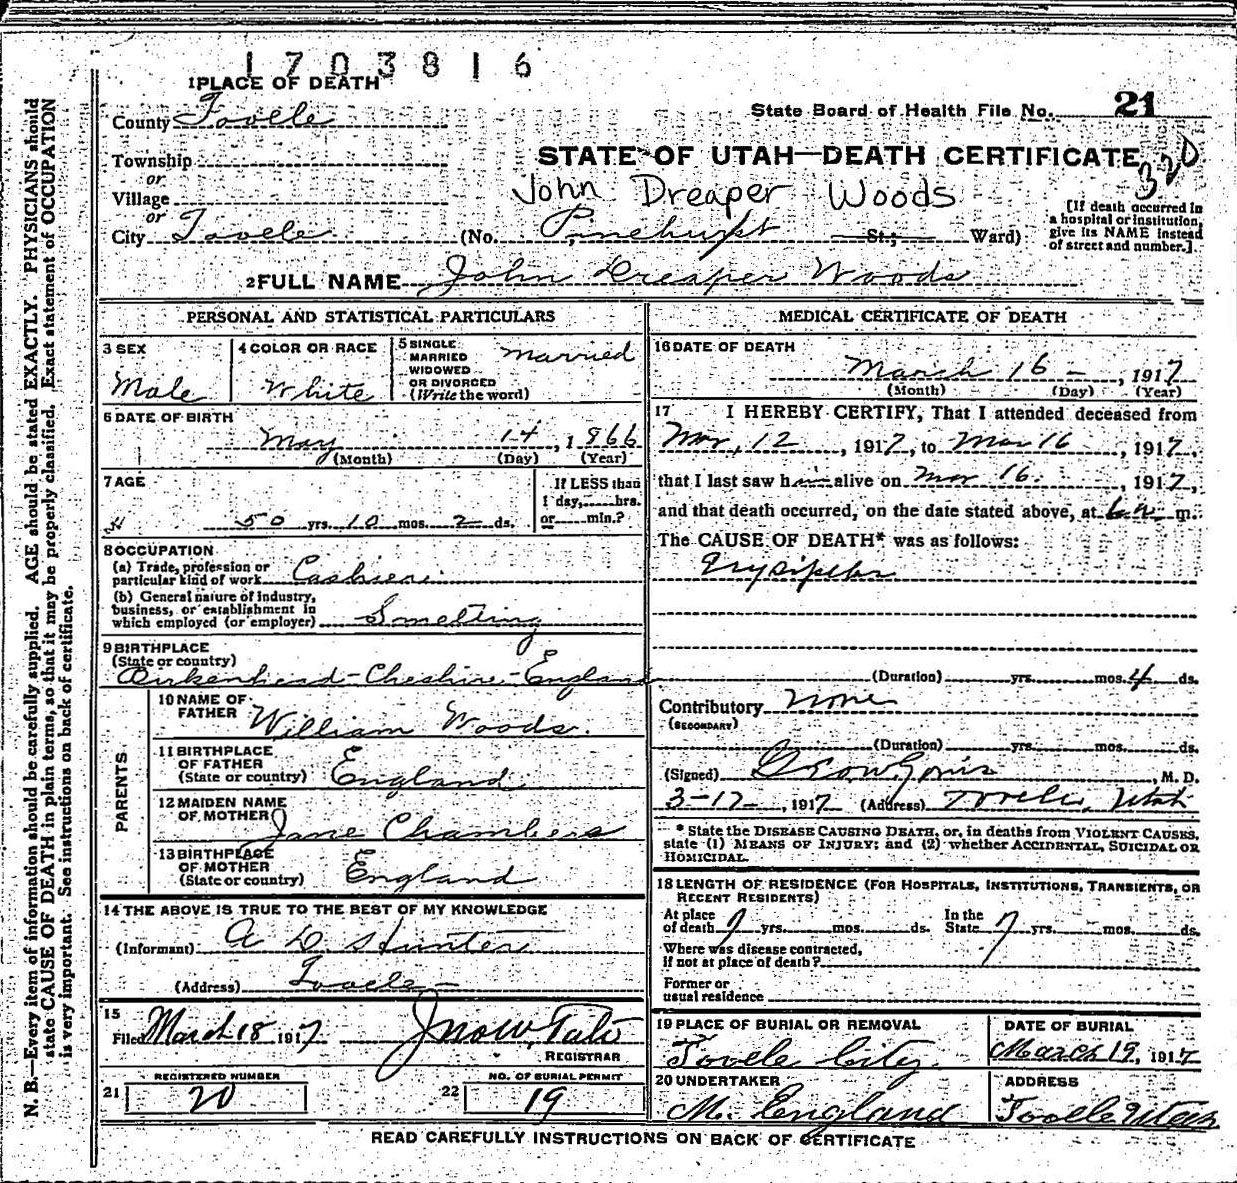 1703816
1 PLACE OF DEATH
County Tooele
State Board of Health File No. 21
Township
or
Village
or
City Tooele (No. Pinehurst St.; Ward)
STATE OF UTAH—DEATH CERTIFICATE
320
John Dreaper Woods
[If death occurred in
a hospital or institution,
give its NAME instead
of street and number.]
2 FULL NAME John Dreaper Woods
PERSONAL AND STATISTICAL PARTICULARS
3 SEX
Male
4 COLOR OR RACE
White
5 SINGLE
MARRIED
WIDOWED
OR DIVORCED
(Write the word)
Married
6 DATE OF BIRTH
May 14, 1866
(Month) (Day) (Year)
7 AGE
50 yrs. 10 mos. 2 ds.
If LESS than
1 day, hrs.
or min.?
8 OCCUPATION
(a) Trade, profession or
particular kind of work Cashier
(b) General nature of industry,
business, or establishment in
which employed (or employer) Smelting
9 BIRTHPLACE
(State or country)
Birkenhead-Cheshire-England
PARENTS
10 NAME OF
FATHER William Woods.
11 BIRTHPLACE
OF FATHER
(State or country) England
12 MAIDEN NAME
OF MOTHER Jane Chambers
13 BIRTHPLACE
OF MOTHER
(State or country) England
14 THE ABOVE IS TRUE TO THE BEST OF MY KNOWLEDGE
(Informant) A D Hunter
(Address) Tooele
15
Filed March 18 1917
REGISTRAR
REGISTERED NUMBER
21 20
NO. OF BURIAL PERMIT
22 19
MEDICAL CERTIFICATE OF DEATH
16 DATE OF DEATH
March 16 - , 1917
(Month) (Day) (Year)
17 I HEREBY CERTIFY, That I attended deceased from
Mar, 12 , 1917, to Mar 16 , 1917,
that I last saw him alive on Mar 16. , 1917,
and that death occurred, on the date stated above, at m.
The CAUSE OF DEATH* was as follows:
Erysipelas
(Duration) yrs. mos. 4 ds.
Contributory None
(SECONDARY)
(Duration) yrs. mos. ds.
(Signed) , M. D.
3-17 , 1917 (Address) Tooele, Utah
* State the DISEASE CAUSING DEATH, or, in deaths from VIOLENT CAUSES,
state (1) MEANS OF INJURY; and (2) whether ACCIDENTAL, SUICIDAL OR
HOMICIDAL.
18 LENGTH OF RESIDENCE (FOR HOSPITALS, INSTITUTIONS, TRANSIENTS, OR
RECENT RESIDENTS)
At place
of death 7 yrs. mos. ds.
In the
State 7 yrs. mos. ds.
Where was disease contracted,
if not at place of death?
Former or
usual residence
19 PLACE OF BURIAL OR REMOVAL
Tooele City.
DATE OF BURIAL
March 19, 1917
20 UNDERTAKER
M. England
ADDRESS
Tooele Utah
READ CAREFULLY INSTRUCTIONS ON BACK OF CERTIFICATE
N. B.—Every item of information should be carefully supplied. AGE should be stated EXACTLY. PHYSICIANS should
state CAUSE OF DEATH in plain terms, so that it may be properly classified. Exact statement of OCCUPATION
is very important. See instructions on back of certificate.